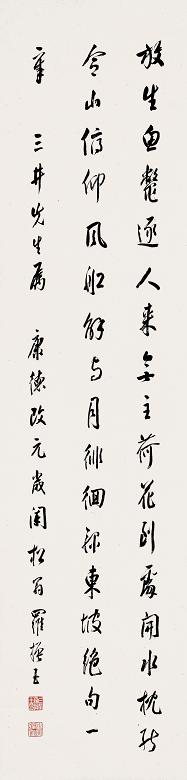 放生魚鼈逐人来無主荷花到處開水枕能
令山俯仰風船解与月徘徊録東坡絶句一
章 三井先生属 康德改元歲闌松翁羅振玉